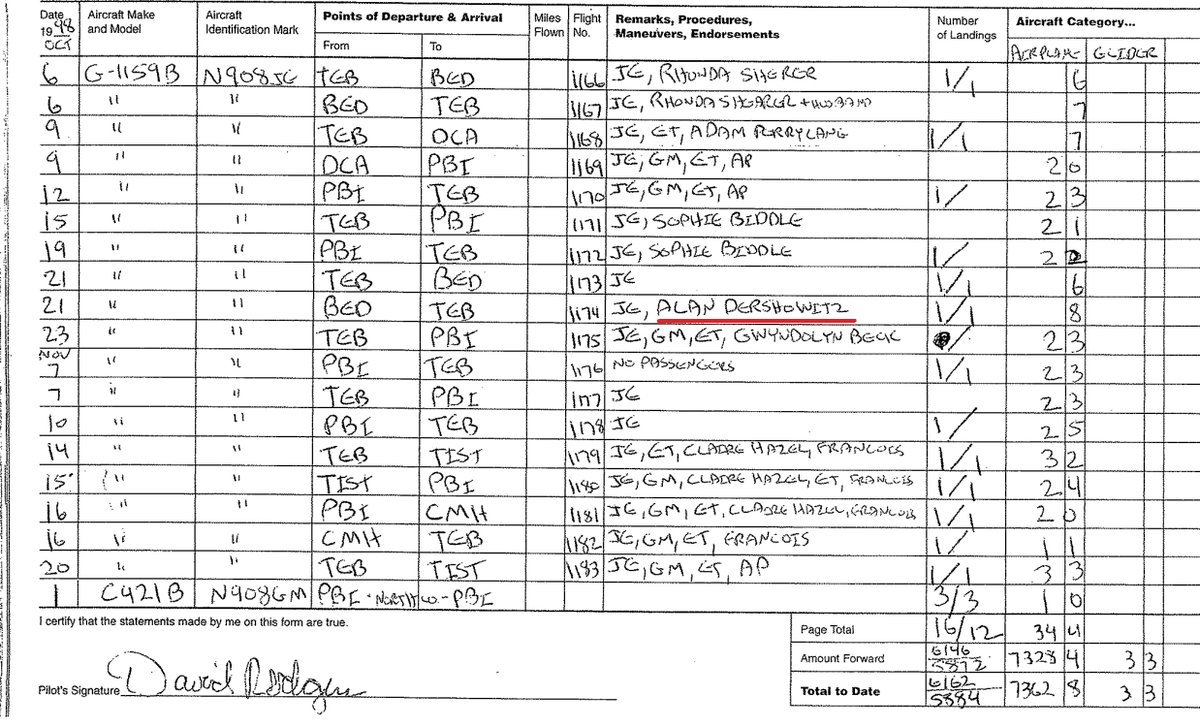 Date Aircraft Make and Model Aircraft Identification Mark Points of Departure & Arrival Miles Flown Flight No. Remarks, Procedures, Maneuvers, Endorsements Number of Landings Aircraft Category...
19 98 OCT From To AIRPLANE GLIDER
6 G-1159B N908JE TEB BED 1166 JE, RHONDA SHERER 1/1 6
6 " " BED TEB 1167 JE, RHONDA SHEARER + HUSBAND 7
9 " " TEB DCA 1168 JE, ET, ADAM PERRY LANG 1/1 7
9 " " DCA PBI 1169 JE, GM, ET, AP 2 0
12 " " PBI TEB 1170 JE, GM, ET, AP 1/ 2 3
15 " " TEB PBI 1171 JE, SOPHIE BIDDLE 2 1
19 " " PBI TEB 1172 JE, SOPHIE BIDDLE 1/ 2
21 " " TEB BED 1173 JE 1/1 6
21 " " BED TEB 1174 JE, ALAN DERSHOWITZ 1/1 8
23 " " TEB PBI 1175 JE, GM, ET, GWYNDOLYN BECK / 2 3
NOV
7 " " PBI TEB 1176 NO PASSENGERS 1/1 2 3
7 " " TEB PBI 1177 JE 2 3
10 " " PBI TEB 1178 JE 1/ 2 5
14 " " TEB TIST 1179 JE, ET, CLAIRE HAZEL, FRANCOIS 1/1 3 2
15 " " TIST PBI 1180 JE, GM, CLAIRE HAZEL, ET, FRANCOIS 1/1 2 4
16 " " PBI CMH 1181 JE, GM, ET, CLAIRE HAZEL, FRANCOIS 1/1 2 0
16 " " CMH TEB 1182 JE, GM, ET, FRANCOIS 1/ 1 1
20 " " TEB TIST 1183 JE, GM, ET, AP 1/1 3 3
1 C421B N908GM PBI - NORTH CO. - PBI 3/3 1 0
I certify that the statements made by me on this form are true.
Page Total 16/12 34 4
Amount Forward 6146 5872 7328 4 3 3
Total to Date 6162 5884 7362 8 3 3
Pilot's Signature David Rodgers